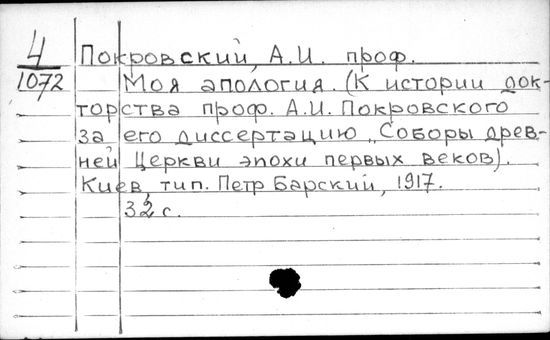 4 Покровский, А.И. проф.
1072 Моя апология. (К истории док-
торства проф. А.И. Покровского
за его диссертацию „Соборы древ-
ней Церкви эпохи первых веков).
Киев, тип. Петр Барский, 1917.
32 с.